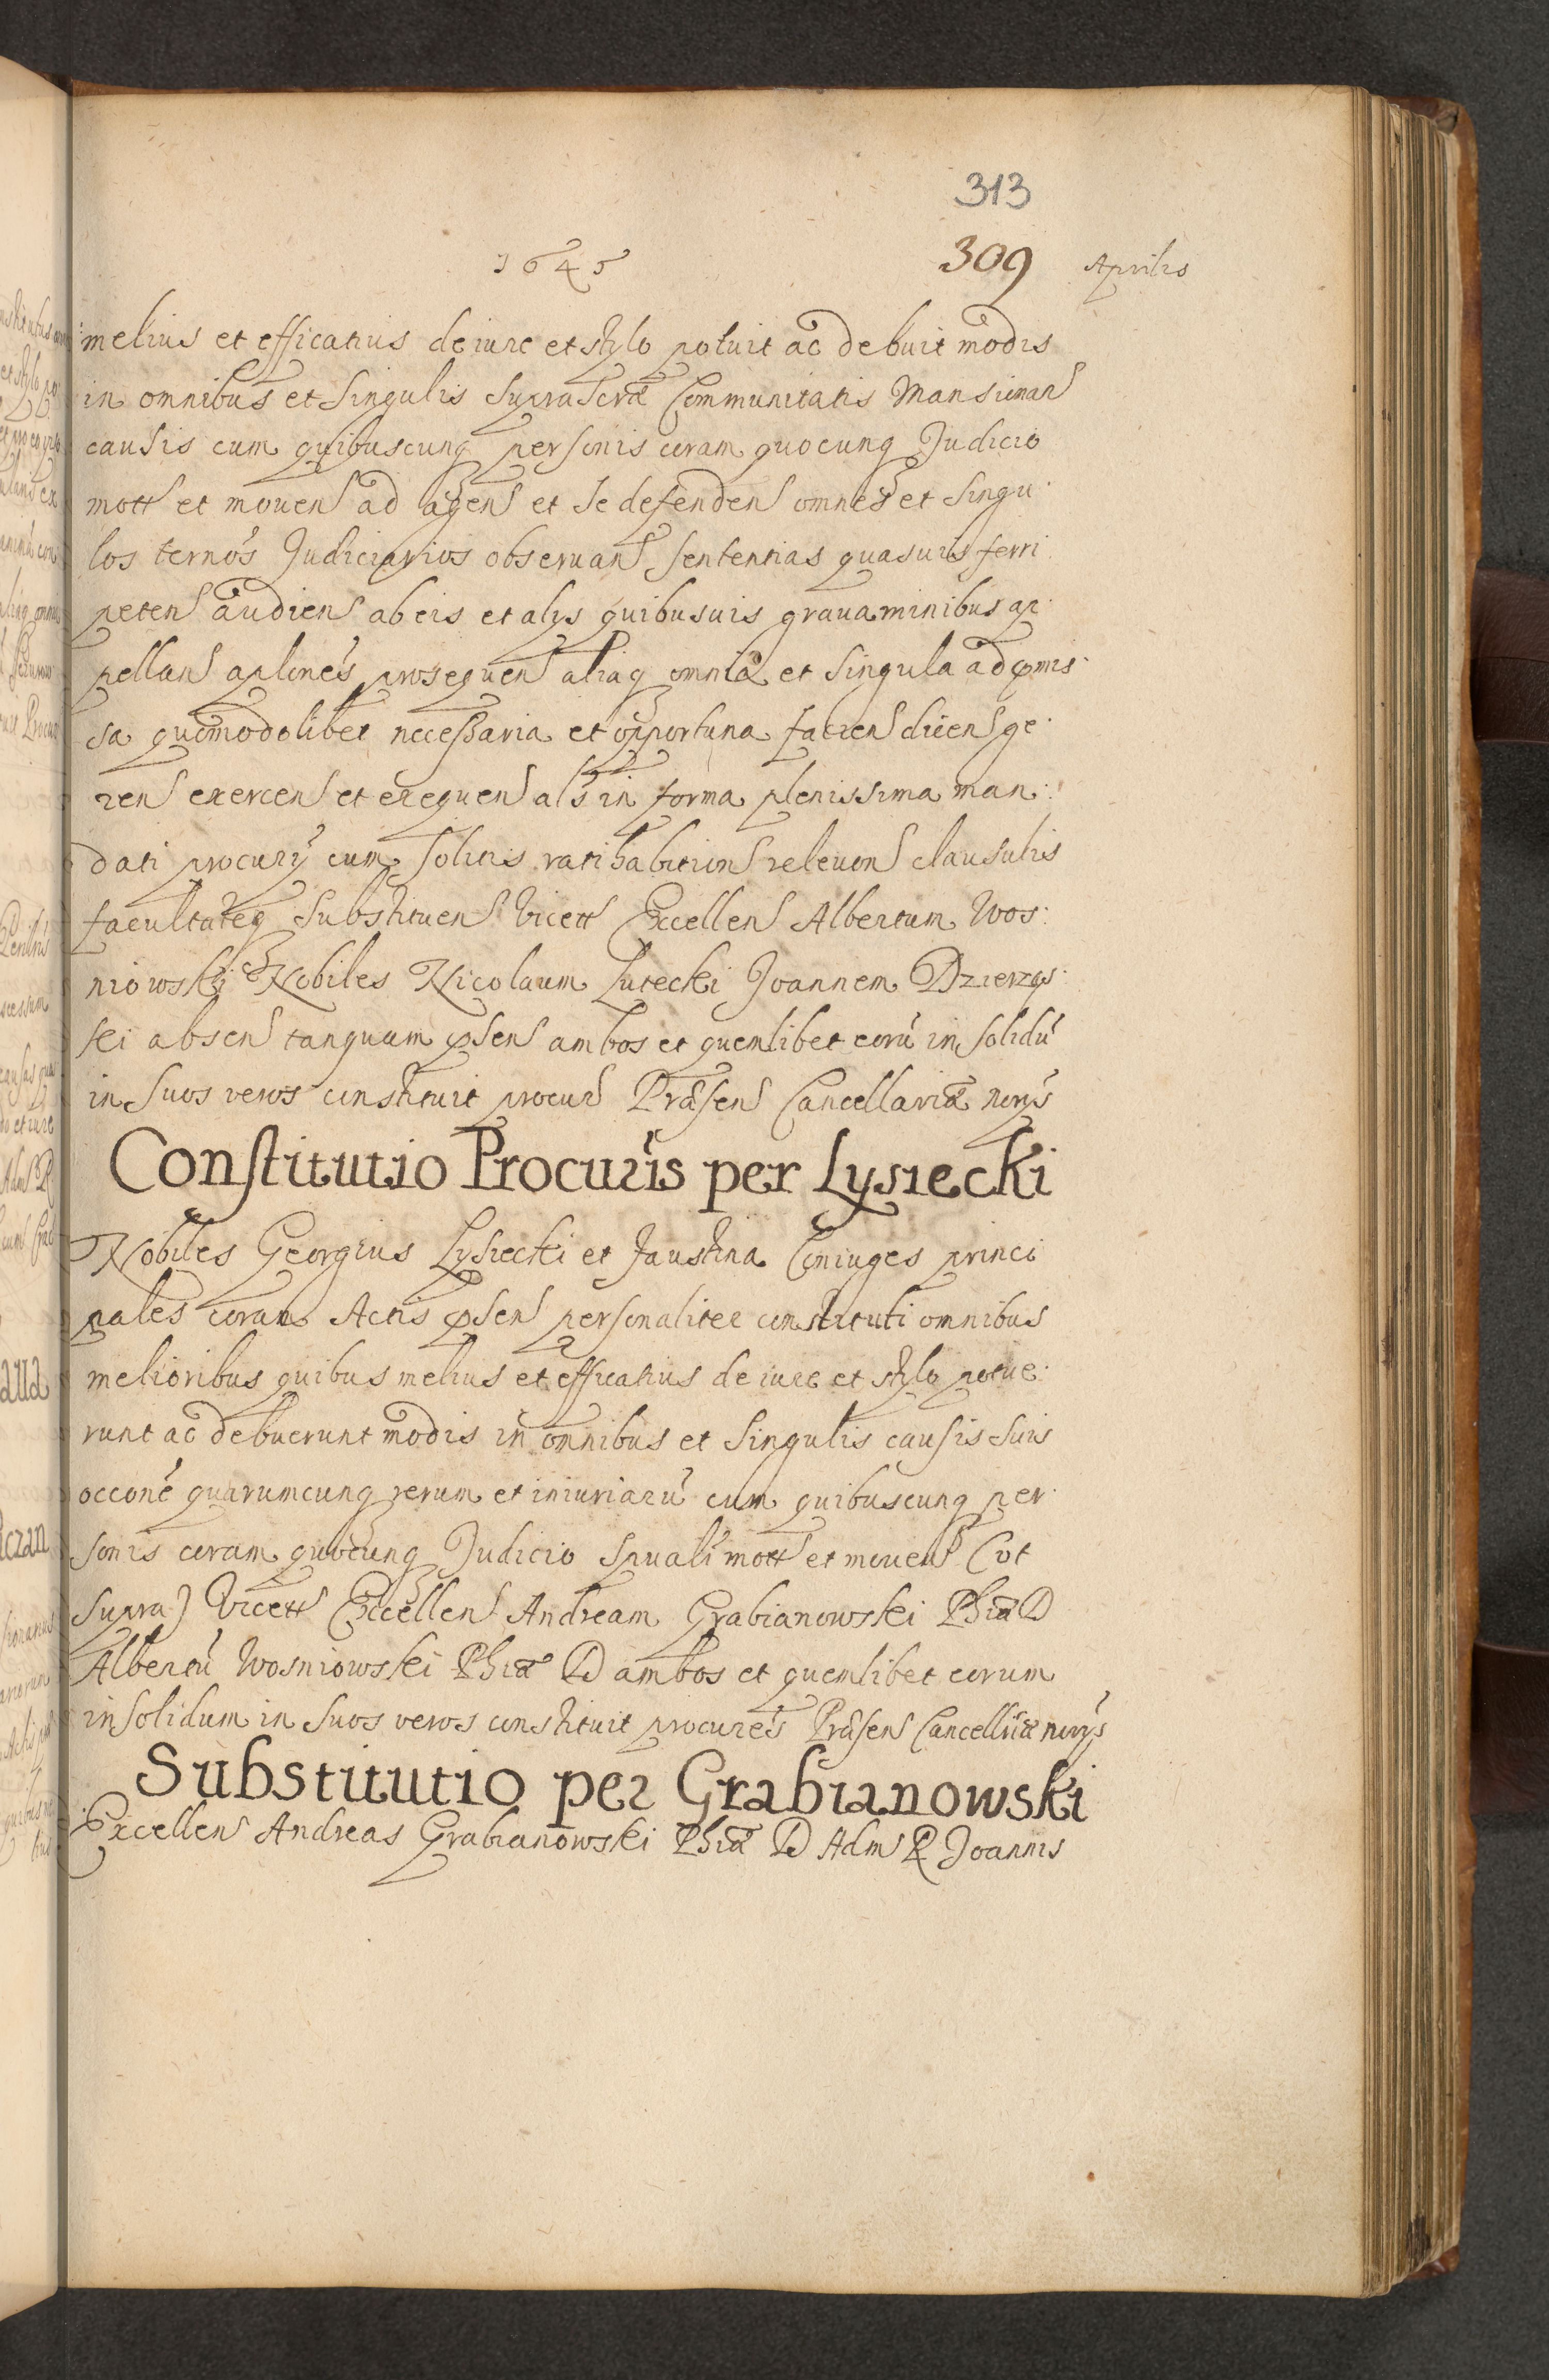 313
1645 309 Aprilis
melius et efficatius de iure et stylo potuit ac debuit modis
in omnibus et Singulis Suprascrae Communitatis Mansionar
causis cum quibuscunq personis coram quocunq Judicio
mott et mouen ad agen et se defenden omnes et Singu
los ternos Judiciarios obseruan sententias quasuis ferri
peten audien ab eis et alys quibusuis grauaminibus ap
pellan aplones prosequen aliaq omnia et Singula ad pmis
sa quomodolibet necessaria et opportuna facien dicen ge
ren exercen et exequen als in forma plenissima man
dati procury cum solitis ratihabition releuon clausulis
facultateq substituen Vicett Excellen Albertum Wos
niowski Nobiles Nicolaum Lutecki Joannem Dzierzgs
ki absen tanquam psen ambos et quemlibet eorū in solidū
in Suos veros constituit procur Præsen Cancellariæ norys
Constitutio Procuris per Lysiecki
Nobiles Georgius Lysiecki et Faustina Coniuges princi
pales coram Actis psen personaliter constituti omnibus
melioribus quibus melius et efficatius de iure et stylo potue
runt ac debuerunt modis in omnibus et Singulis causis suis
occone quarumcunq rerum et iniuriarū cum quibuscunq per
sonis coram quocunq Judicio Spuali mott et mouen (vt
supra) Vicett Excellen Andream Grabianowski Phiæ D
Albertū Wosniowski Phiæ D ambos et quemlibet eorum
in solidum in Suos veros constituit procures Præsen Cancellriæ norys
Substitutio per Grabianowski
Excellen Andreas Grabianowski Phiæ D Adm R Joannis